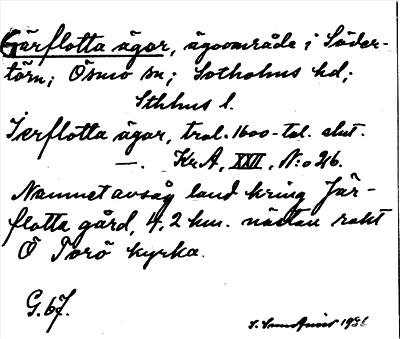 Gärflotta ägor, ägoområde i Söder-
törn; Ösmo sn; Sotholms hd;
Sthlms l.
Jerflotta ägor, trol. 1600-tal. slut.
—. KrA, XXII, N:o 26.
Namnet avsåg land kring Jär-
flotta gård, 4,2 km. nästan rakt
Ö Torö kyrka.
G. 67.